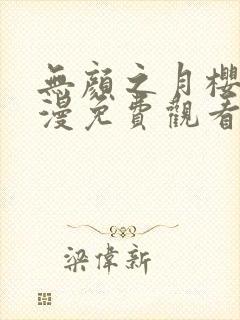 無顏之月櫻
漫免費觀看
梁偉新